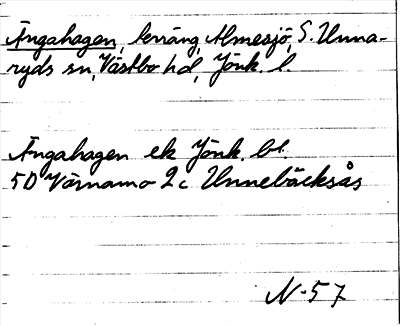 Ängahagen, terräng, Almesjö, S. Unna-
ryds sn, Västbo hd, Jönk. l.
Ängahagen ek Jönk. bl.
5D Värnamo 2c Unnebäcksås
N-57